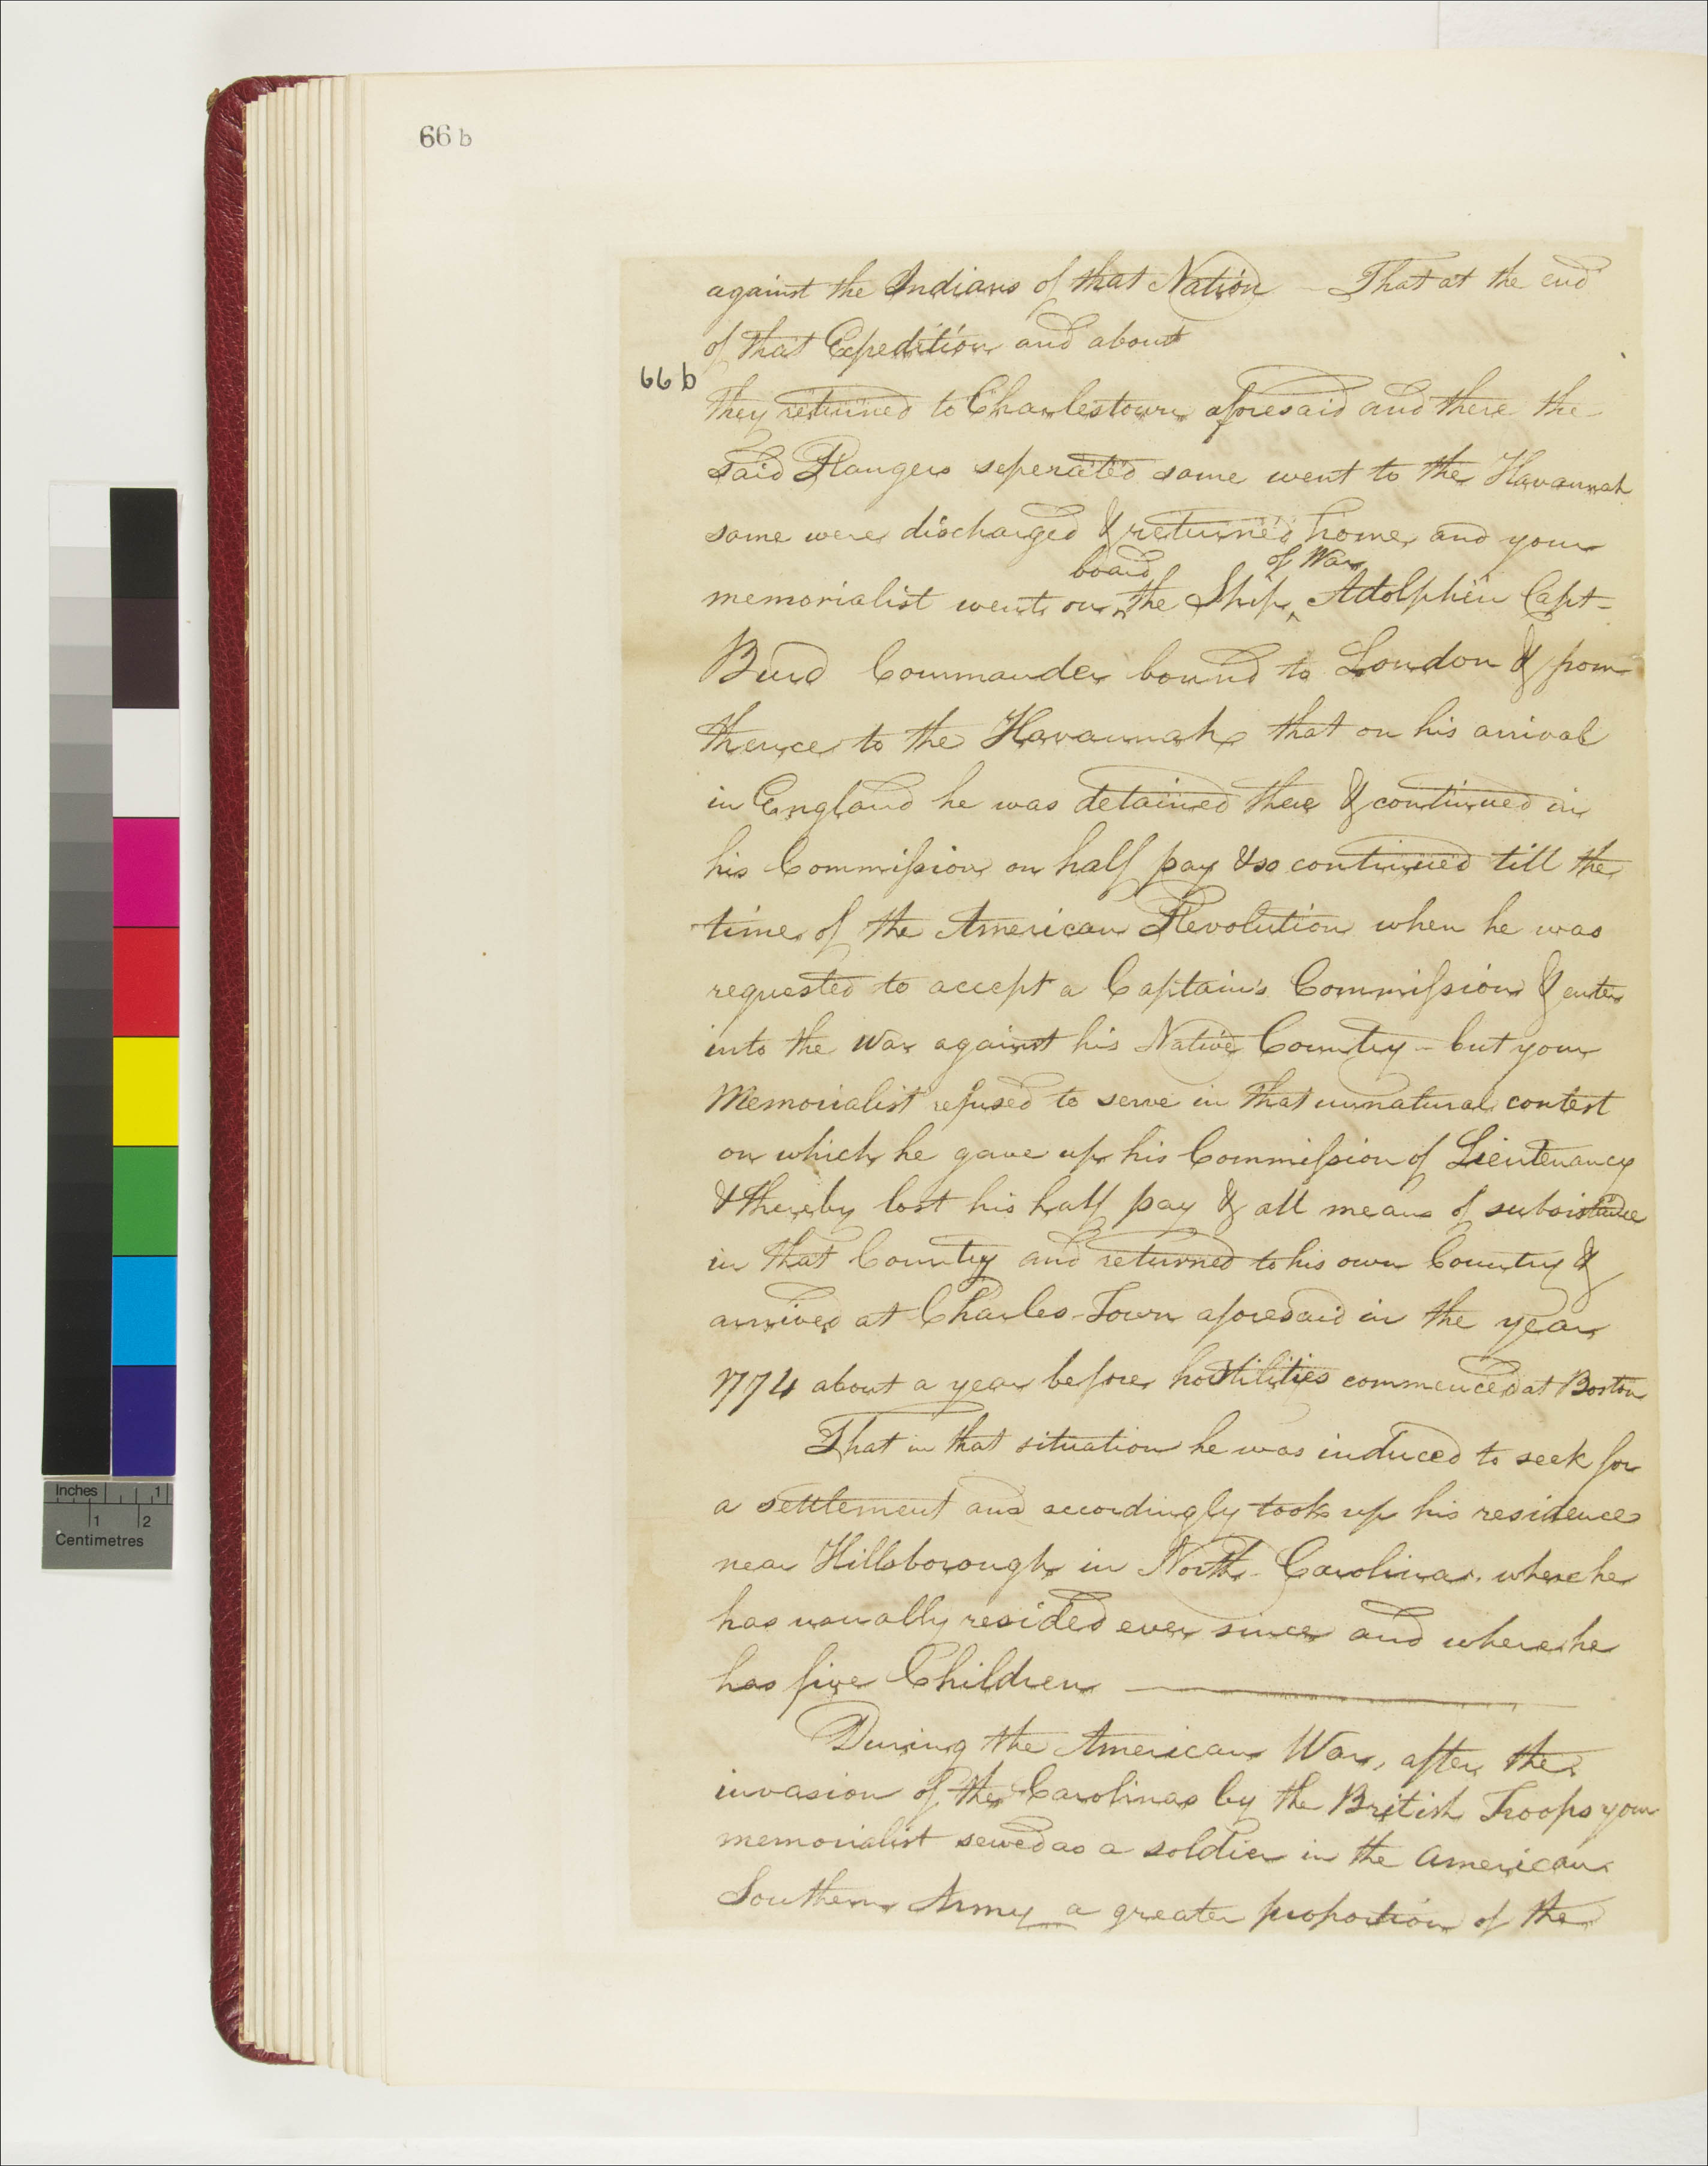 66 b
against the Indians of that Nation - That at the end
of that Expedition and about
66 b
they returned to Charlestown aforesaid and there the
said Rangers seperated some went to the Havannah
some were discharged & returned home, and your
board of War
memorialist went on ^ the Ship ^ Adolphin Capt-
Burd Commander bound to London & from
thence to the Havannah that on his arrival
in England he was detained there & continued in
his Commission on half pay & so continued till the
time of the American Revolution when he was
requested to accept a Captain's Commission & enter
into the War against his Native Country - but your
Memorialist refused to serve in that unnatural contest
on which he gave up his Commission of Lieutenancy
& thereby lost his half pay & all means of subsistance
in that Country and returned to his own Country &
arrived at Charles-Town aforesaid in the year
1774 about a year before hostilities commenced at Boston
That in that situation he was induced to seek for
a settlement and accordingly took up his residence
near Hillsborough in North-Carolina. where he
has usually resided ever since and where he
has five Children
During the American War, after the
invasion of the Carolinas by the British Troops your
memorialist served as a soldier in the American
Southern Army a greater proportion of the
Inches 1
1 2
Centimetres